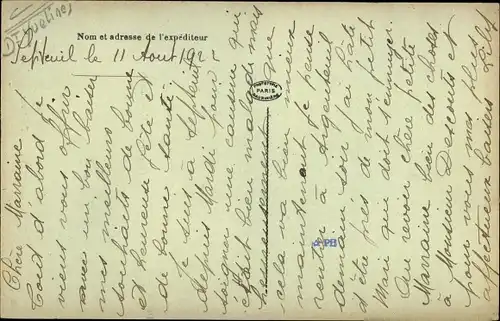 Yvelines
Nom et adresse de l'expéditeur
Septeuil le 11 Aout 1922
Chère Marraine
Tout d'abord je
viens vous offrir
avec un bon baiser
mes meilleurs
souhaits de bonne
et heureuse fête et
de bonne santé
Je suis à Septeuil
depuis Mardi pour
soigner une cousine qui
était bien malade mais
heureusement que
cela va bien mieux
maintenant je pense
rentrer à Argenteuil
demain soir j'ai hâte
d'être près de mon petit
Mari qui doit s'ennuyer.
Au revoir chère petite
Marraine bien des choses
à Monsieur Descouts et
pour vous mes plus
affectueux baisers
PARIS
PH